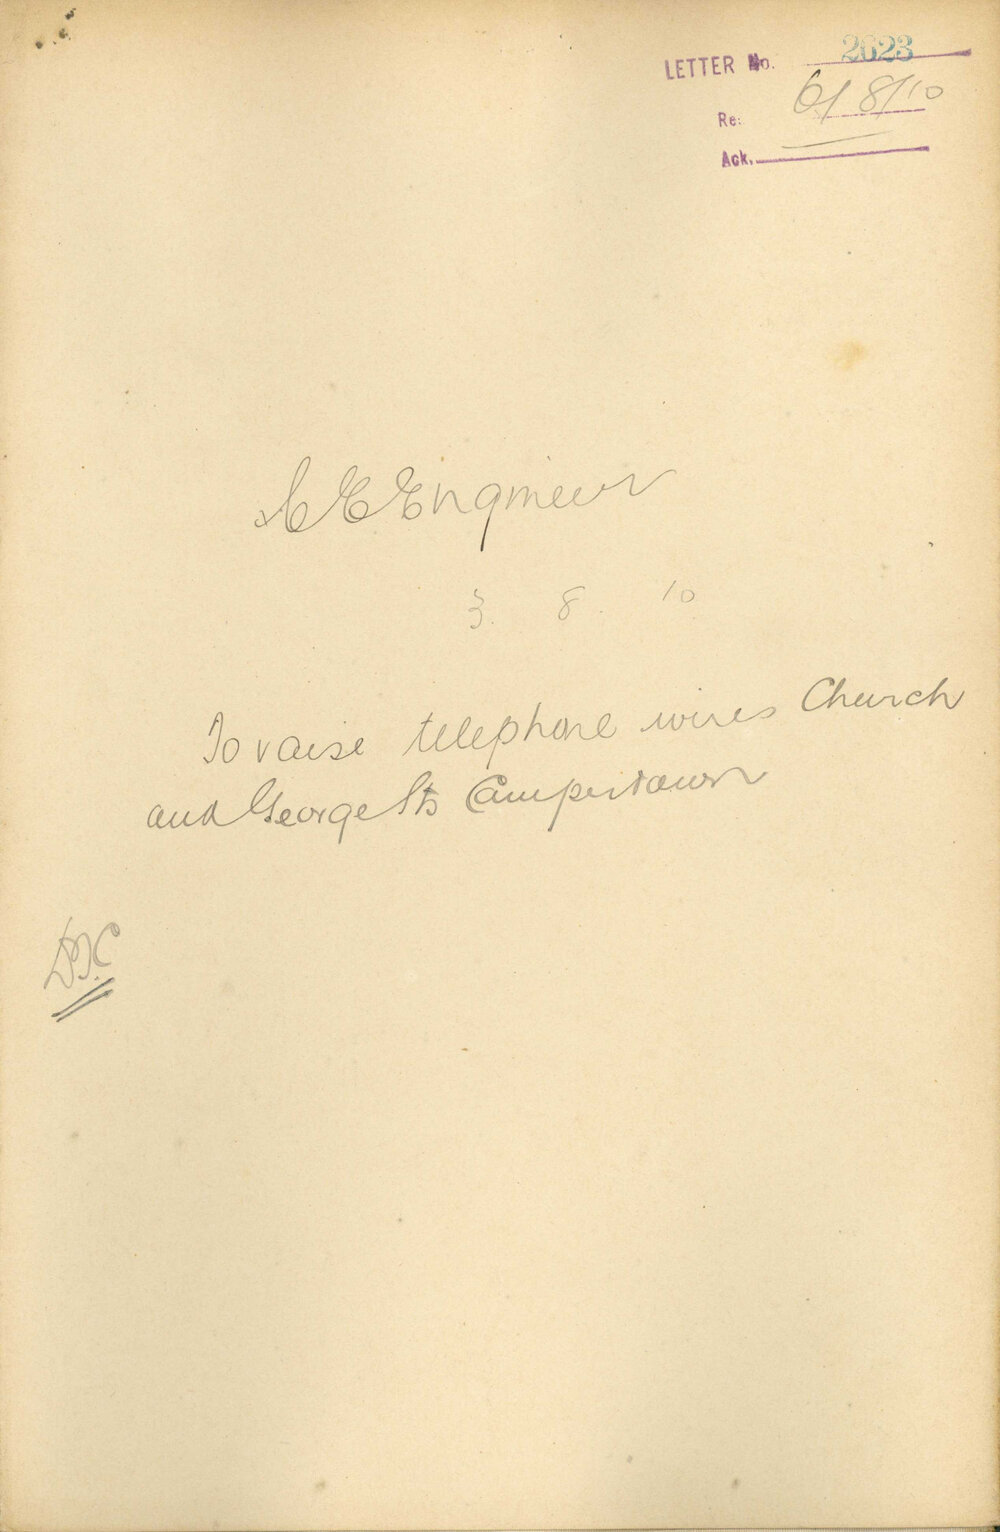 LETTER No. 2623
Re: 6/8/10
Ack.
C E Engineer
3. 8. 10
To raise telephone wires Church
and George Sts Camperdown